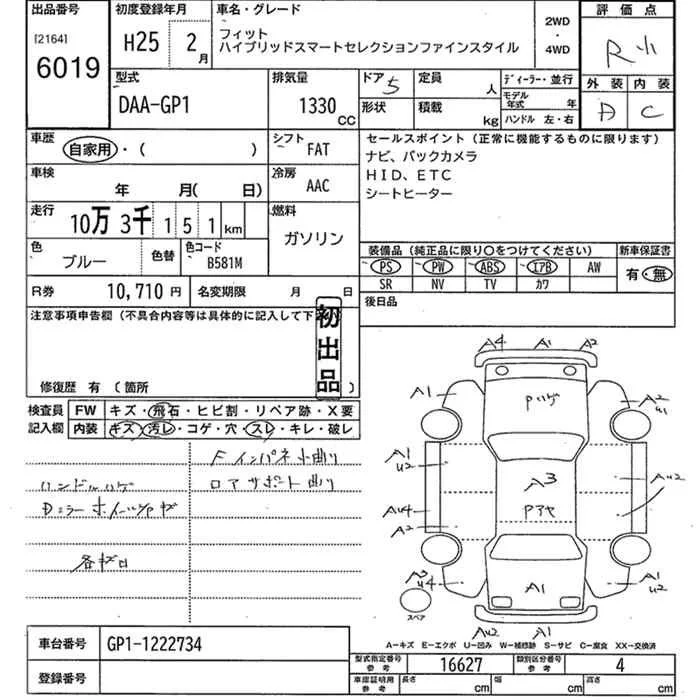 出品番号
[2164]
6019
初度登録年月
H25 2月
車名・グレード
フィット
ハイブリッドスマートセレクションファインスタイル
2WD
・
4WD
評価点
R小
外装 内装
D C
型式
DAA-GP1
排気量
1330 CC
ドア 5
形状
定員 人
積載 kg
ディーラー・並行
モデル年式 年
ハンドル 左・右
車歴
自家用・( )
シフト
FAT
セールスポイント(正常に機能するものに限ります)
ナビ、バックカメラ
HID、ETC
シートヒーター
車検
年 月(日)
冷房
AAC
走行
10万 3千 151 km
燃料
ガソリン
色
ブルー
色替
色コード
B581M
装備品(純正品に限り○をつけてください)
PS PW ABS エアB AW
SR NV TV カワ
新車保証書
有・無
R券 10,710円
名変期限 月 日
後日品
注意事項申告欄(不具合内容等は具体的に記入して下
初出品
修復歴 有 〔箇所 〕
検査員記入欄
FW キズ・飛石・ヒビ割・リペア跡・X要
内装 キズ・汚レ・コゲ・穴・スレ・キレ・破レ
Fインパネ小曲り
ハンドルハゲ
ロアサポート曲り
Dミラー ホイールキズ
各キロ
A4 A1 A2
A1
Pハゲ
A2
U1
A1
U2
A3
AU2
Pアセ
AU4
A2
A3
U4
A1
A1
U2
スペア
AU2 A1
A=キズ E=エクボ U=凹み W=補修跡 S=サビ C=腐食 XX=交換済
車台番号 GP1-1222734
登録番号
型式指定番号 参考 16627
類別区分番号 参考 4
車庫証明用 参考 長さ cm 幅 cm 高さ cm